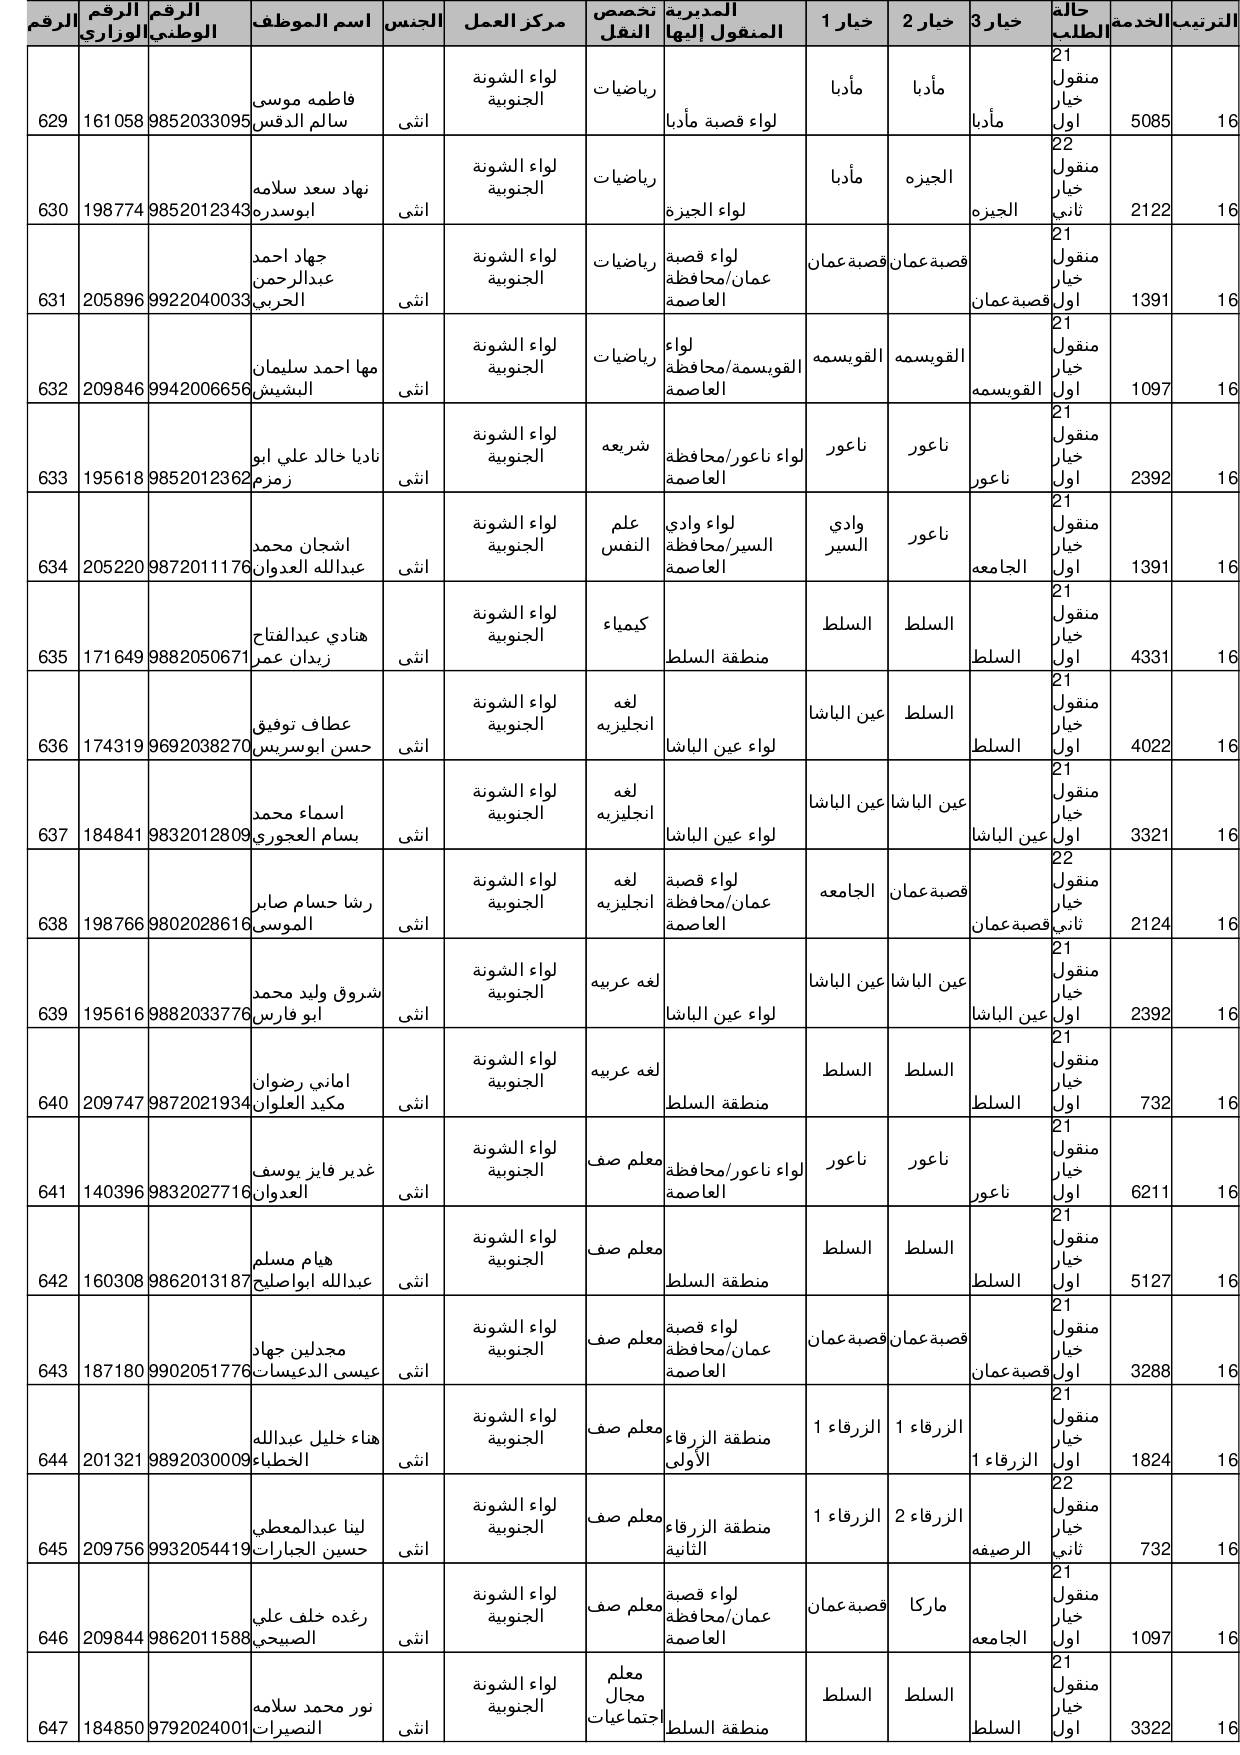 الرقم الرقم الوزاري الرقم الوطني اسم الموظف الجنس مركز العمل تخصص النقل المديرية المنقول إليها خيار 1 خيار 2 خيار 3 حالة الطلب الخدمة الترتيب
629 161058 9852033095 فاطمه موسى سالم الدقس انثى لواء الشونة الجنوبية رياضيات لواء قصبة مأدبا مأدبا مأدبا مأدبا 21 منقول خيار اول 5085 16
630 198774 9852012343 نهاد سعد سلامه ابوسدره انثى لواء الشونة الجنوبية رياضيات لواء الجيزة مأدبا الجيزه الجيزه 22 منقول خيار ثاني 2122 16
631 205896 9922040033 جهاد احمد عبدالرحمن الحربي انثى لواء الشونة الجنوبية رياضيات لواء قصبة عمان/محافظة العاصمة قصبةعمان قصبةعمان قصبةعمان 21 منقول خيار اول 1391 16
632 209846 9942006656 مها احمد سليمان البشيش انثى لواء الشونة الجنوبية رياضيات لواء القويسمة/محافظة العاصمة القويسمه القويسمه القويسمه 21 منقول خيار اول 1097 16
633 195618 9852012362 ناديا خالد علي ابو زمزم انثى لواء الشونة الجنوبية شريعه لواء ناعور/محافظة العاصمة ناعور ناعور ناعور 21 منقول خيار اول 2392 16
634 205220 9872011176 اشجان محمد عبدالله العدوان انثى لواء الشونة الجنوبية علم النفس لواء وادي السير/محافظة العاصمة وادي السير ناعور الجامعه 21 منقول خيار اول 1391 16
635 171649 9882050671 هنادي عبدالفتاح زيدان عمر انثى لواء الشونة الجنوبية كيمياء منطقة السلط السلط السلط السلط 21 منقول خيار اول 4331 16
636 174319 9692038270 عطاف توفيق حسن ابوسريس انثى لواء الشونة الجنوبية لغه انجليزيه لواء عين الباشا عين الباشا السلط السلط 21 منقول خيار اول 4022 16
637 184841 9832012809 اسماء محمد بسام العجوري انثى لواء الشونة الجنوبية لغه انجليزيه لواء عين الباشا عين الباشا عين الباشا عين الباشا 21 منقول خيار اول 3321 16
638 198766 9802028616 رشا حسام صابر الموسى انثى لواء الشونة الجنوبية لغه انجليزيه لواء قصبة عمان/محافظة العاصمة الجامعه قصبةعمان قصبةعمان 22 منقول خيار ثاني 2124 16
639 195616 9882033776 شروق وليد محمد ابو فارس انثى لواء الشونة الجنوبية لغه عربيه لواء عين الباشا عين الباشا عين الباشا عين الباشا 21 منقول خيار اول 2392 16
640 209747 9872021934 اماني رضوان مكيد العلوان انثى لواء الشونة الجنوبية لغه عربيه منطقة السلط السلط السلط السلط 21 منقول خيار اول 732 16
641 140396 9832027716 غدير فايز يوسف العدوان انثى لواء الشونة الجنوبية معلم صف لواء ناعور/محافظة العاصمة ناعور ناعور ناعور 21 منقول خيار اول 6211 16
642 160308 9862013187 هيام مسلم عبدالله ابواصليح انثى لواء الشونة الجنوبية معلم صف منطقة السلط السلط السلط السلط 21 منقول خيار اول 5127 16
643 187180 9902051776 مجدلين جهاد عيسى الدعيسات انثى لواء الشونة الجنوبية معلم صف لواء قصبة عمان/محافظة العاصمة قصبةعمان قصبةعمان قصبةعمان 21 منقول خيار اول 3288 16
644 201321 9892030009 هناء خليل عبدالله الخطباء انثى لواء الشونة الجنوبية معلم صف منطقة الزرقاء الأولى الزرقاء 1 الزرقاء 1 الزرقاء 1 21 منقول خيار اول 1824 16
645 209756 9932054419 لينا عبدالمعطي حسين الجبارات انثى لواء الشونة الجنوبية معلم صف منطقة الزرقاء الثانية الزرقاء 1 الزرقاء 2 الرصيفه 22 منقول خيار ثاني 732 16
646 209844 9862011588 رغده خلف علي الصبيحي انثى لواء الشونة الجنوبية معلم صف لواء قصبة عمان/محافظة العاصمة قصبةعمان ماركا الجامعه 21 منقول خيار اول 1097 16
647 184850 9792024001 نور محمد سلامه النصيرات انثى لواء الشونة الجنوبية معلم مجال اجتماعيات منطقة السلط السلط السلط السلط 21 منقول خيار اول 3322 16